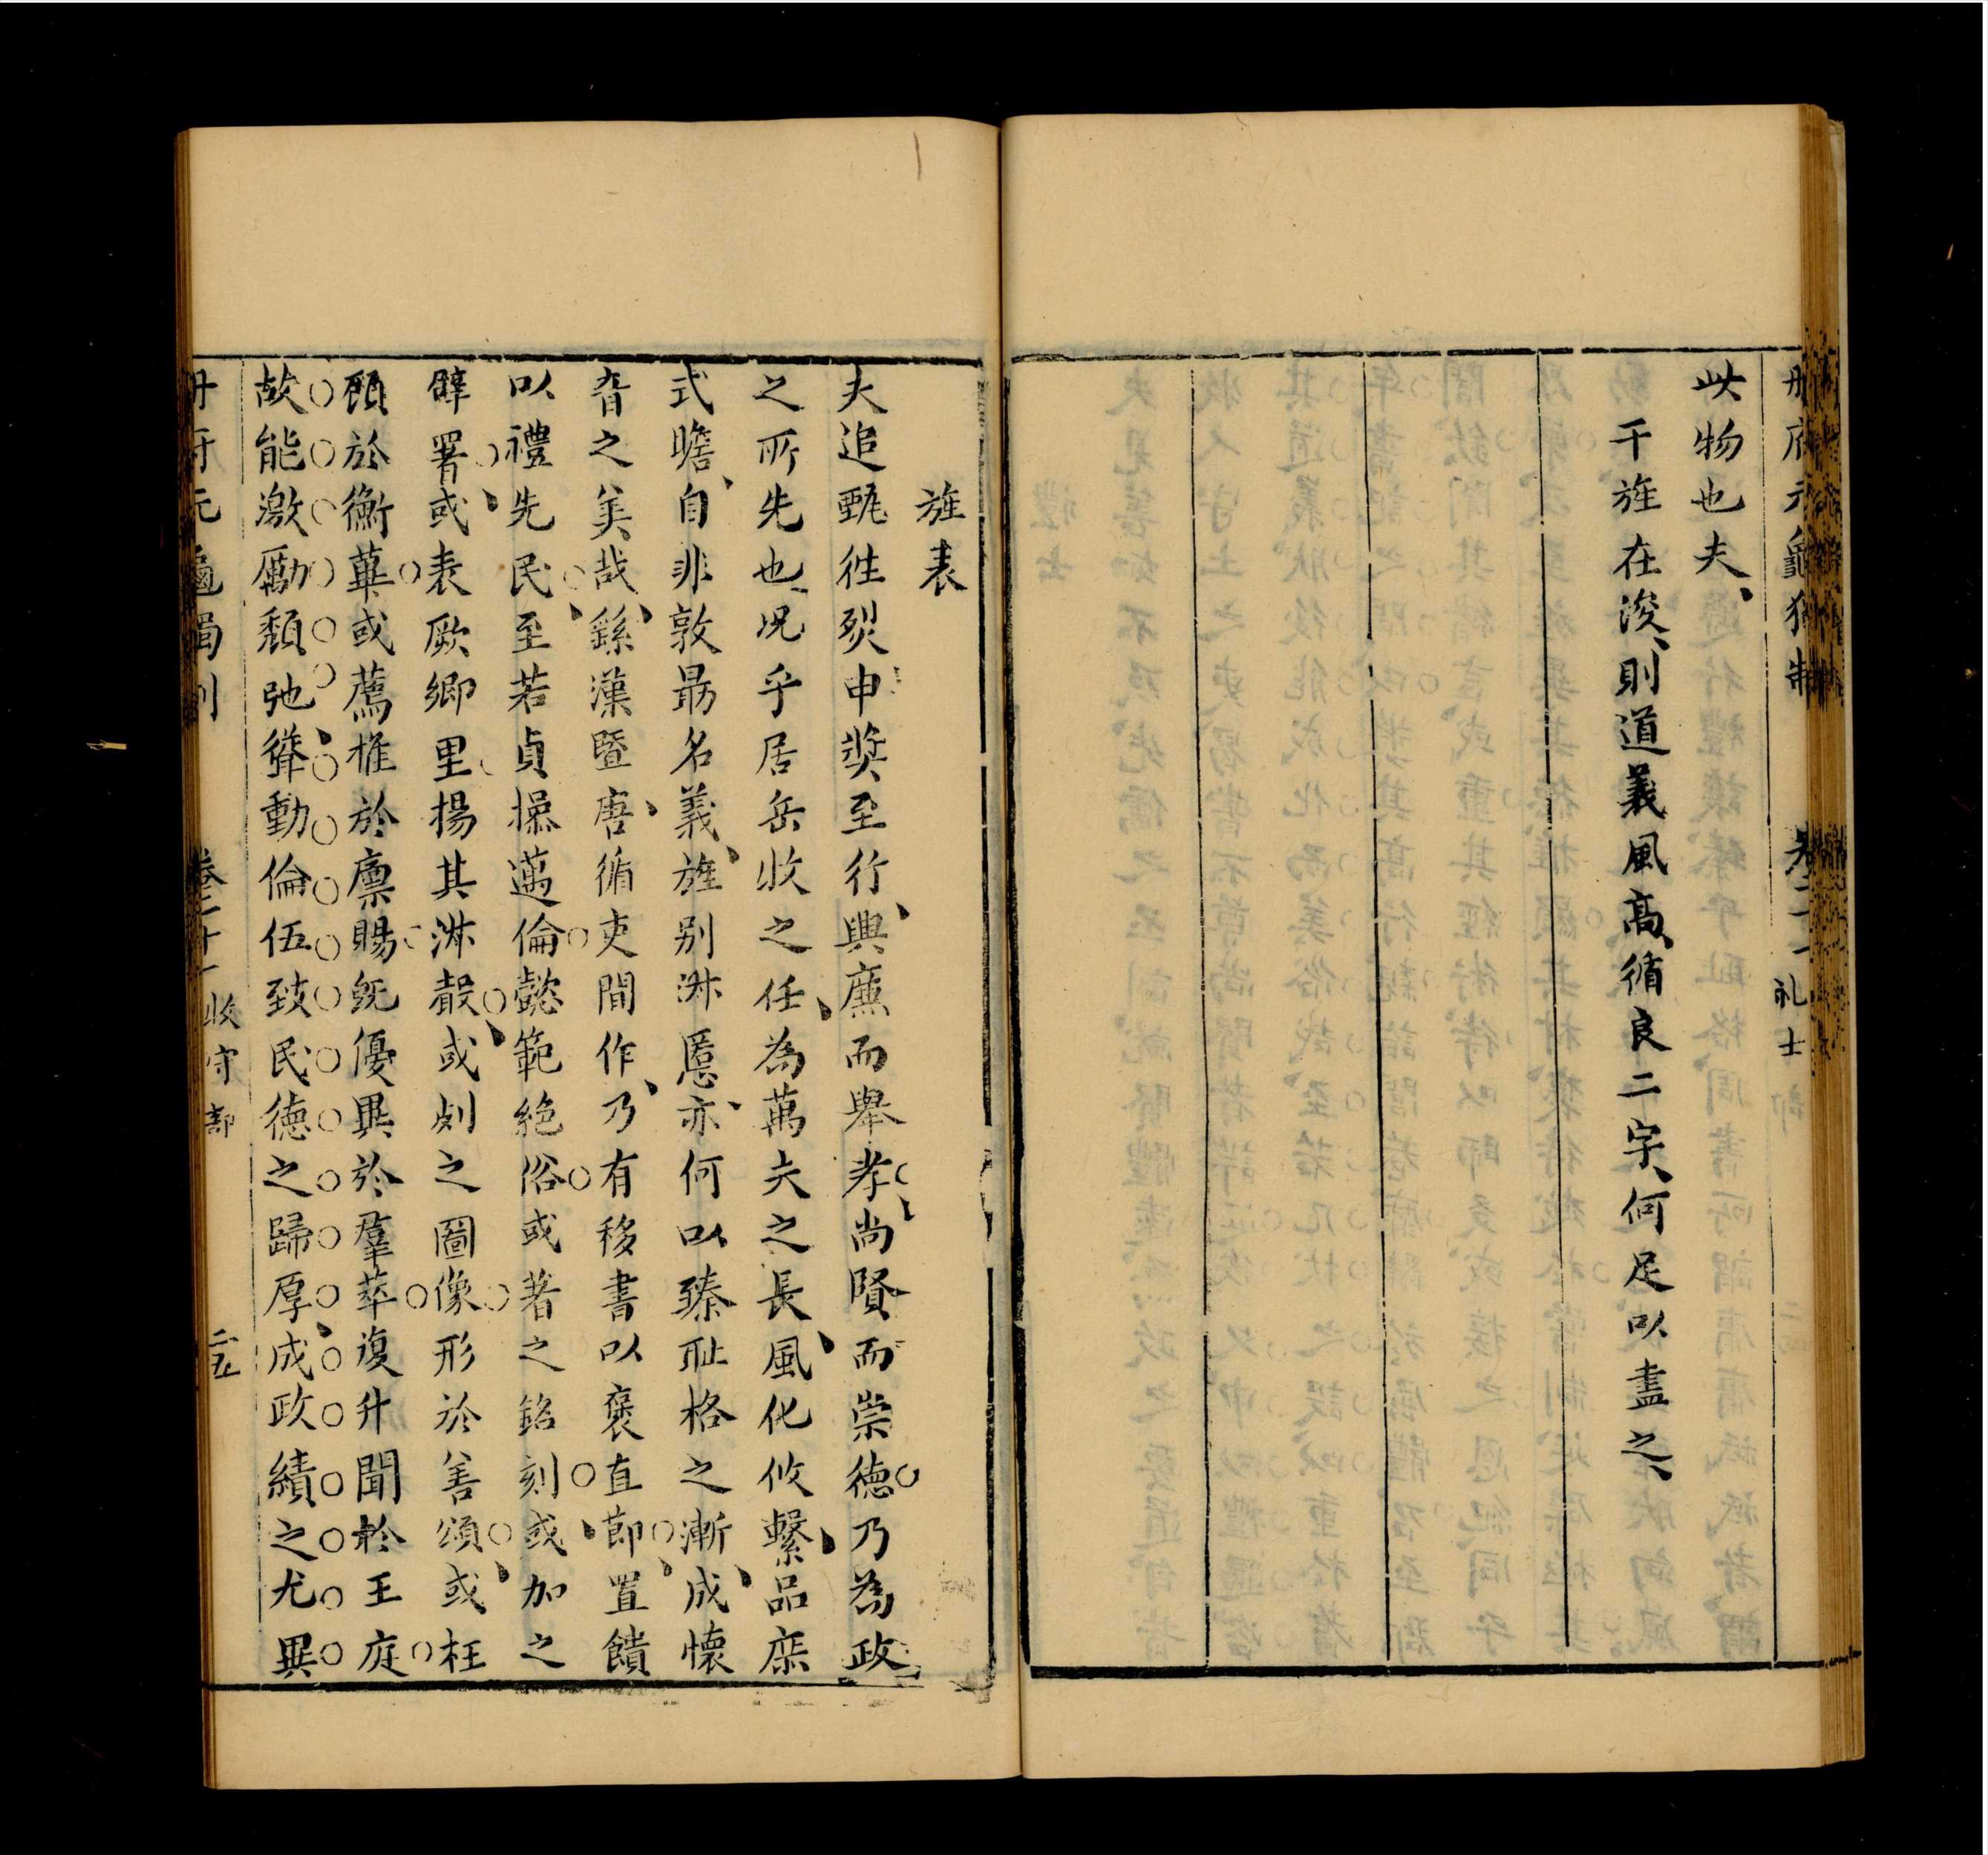 册府元龜獨制 卷二十一 礼士
此物也夫、
干旌在浚、則道義風高、循良二字、何足以盡之、
旌表
夫追甄徃烈申奬至行、興廉而舉孝、尚賢而崇德乃為政
之所先也、况乎居岳收之任、為萬夫之長、風化攸繫、品庶
式瞻、自非敦朂名義、旌别淋慝、亦何以臻耻格之漸、成懷
音之美哉、繇漢暨唐、循吏間作、乃有移書以褒直節、置饋
以禮先民、至若貞操邁倫懿範絶俗或著之銘刻、或加之
辟署、或表厥鄉里揚其淋聲、或刻之圖像形於善頌、或枉
顧於衡蓽或薦推於廩賜既優異於羣萃復升聞於王庭
故能激勵頽弛、聳動倫伍致民德之歸厚、成政績之尤異
册府元龜獨制 卷二十一 收守部 二五